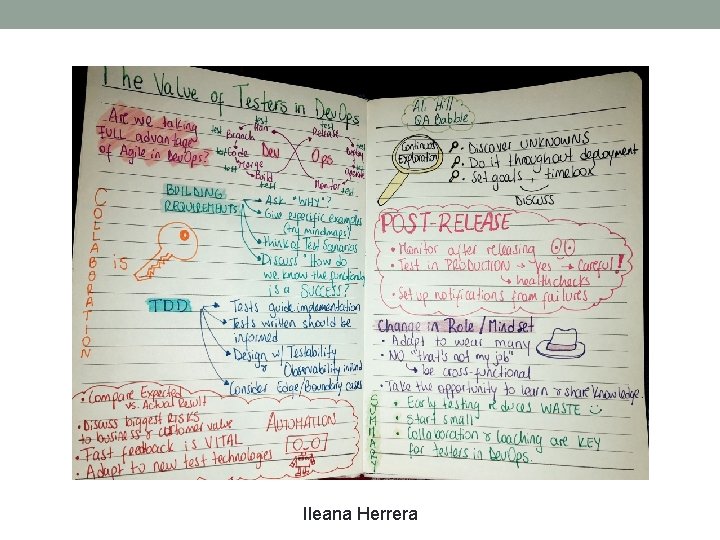 The Value of Testers in DevOps
Are we taking
FULL advantage
of Agile in DevOps?
test
Plan
test Branch
test Code
Merge
test
Build
test
Dev
Ops
test
Release
test
Deploy
test
Operate
Monitor
test
COLLABORATION
is
BUILDING
REQUIREMENTS
Ask "WHY"?
Give especific examples
(try mindmaps)
• Think of Test Scenarios
• Discuss "How do
we know the functionality
is a SUCCESS?
TDD
Tests guide implementation
Tests written should be
informed
Design w/ Testability
& Observability in mind
Consider Edge/Boundary cases
• Compare Expected
vs. Actual Result
• Discuss biggest RISKS
to business & customer value
• Fast feedback is VITAL
• Adapt to new test technologies
AUTOMATION
Al Hill
QA Babble
Continuous
Exploration
• Discover UNKNOWNS
• Do it throughout deployment
• Set goals timebox
DISCUSS
POST-RELEASE
• Monitor after releasing
• Test in PRODUCTION → yes → Careful!
healthchecks
• Set up notifications from failures
Change in Role/Mindset
• Adapt to wear many
• NO "that's not my job"
be cross-functional
• Take the opportunity to learn & share knowledge.
SUMMARY
• Early testing reduces WASTE
• Start small
• Collaboration & Coaching are KEY
for testers in DevOps.
Ileana Herrera